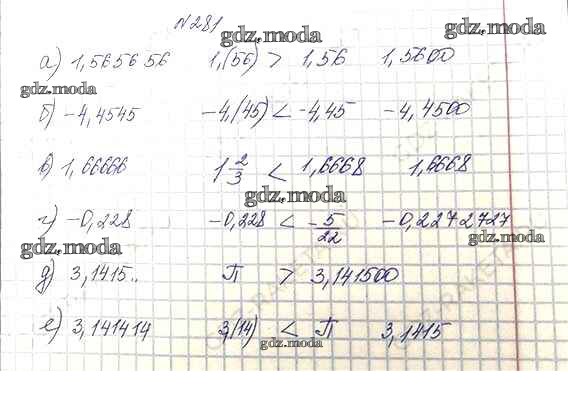 N281
gdz.moda
gdz.moda
а) 1,565656 1,(56) > 1,56 1,5600
gdz.moda
б) -4,4545 -4,(45) < -4,45 -4,4500
в) 1,66666 1 2/3 < 1,6668 1,6668
gdz.moda
г) -0,228 -0,228 < -5/22 -0,2272727
gdz.moda
gdz.moda
д) 3,1415.. П > 3,141500
е) 3,141414 3,(14) < П 3,1415
gdz.moda